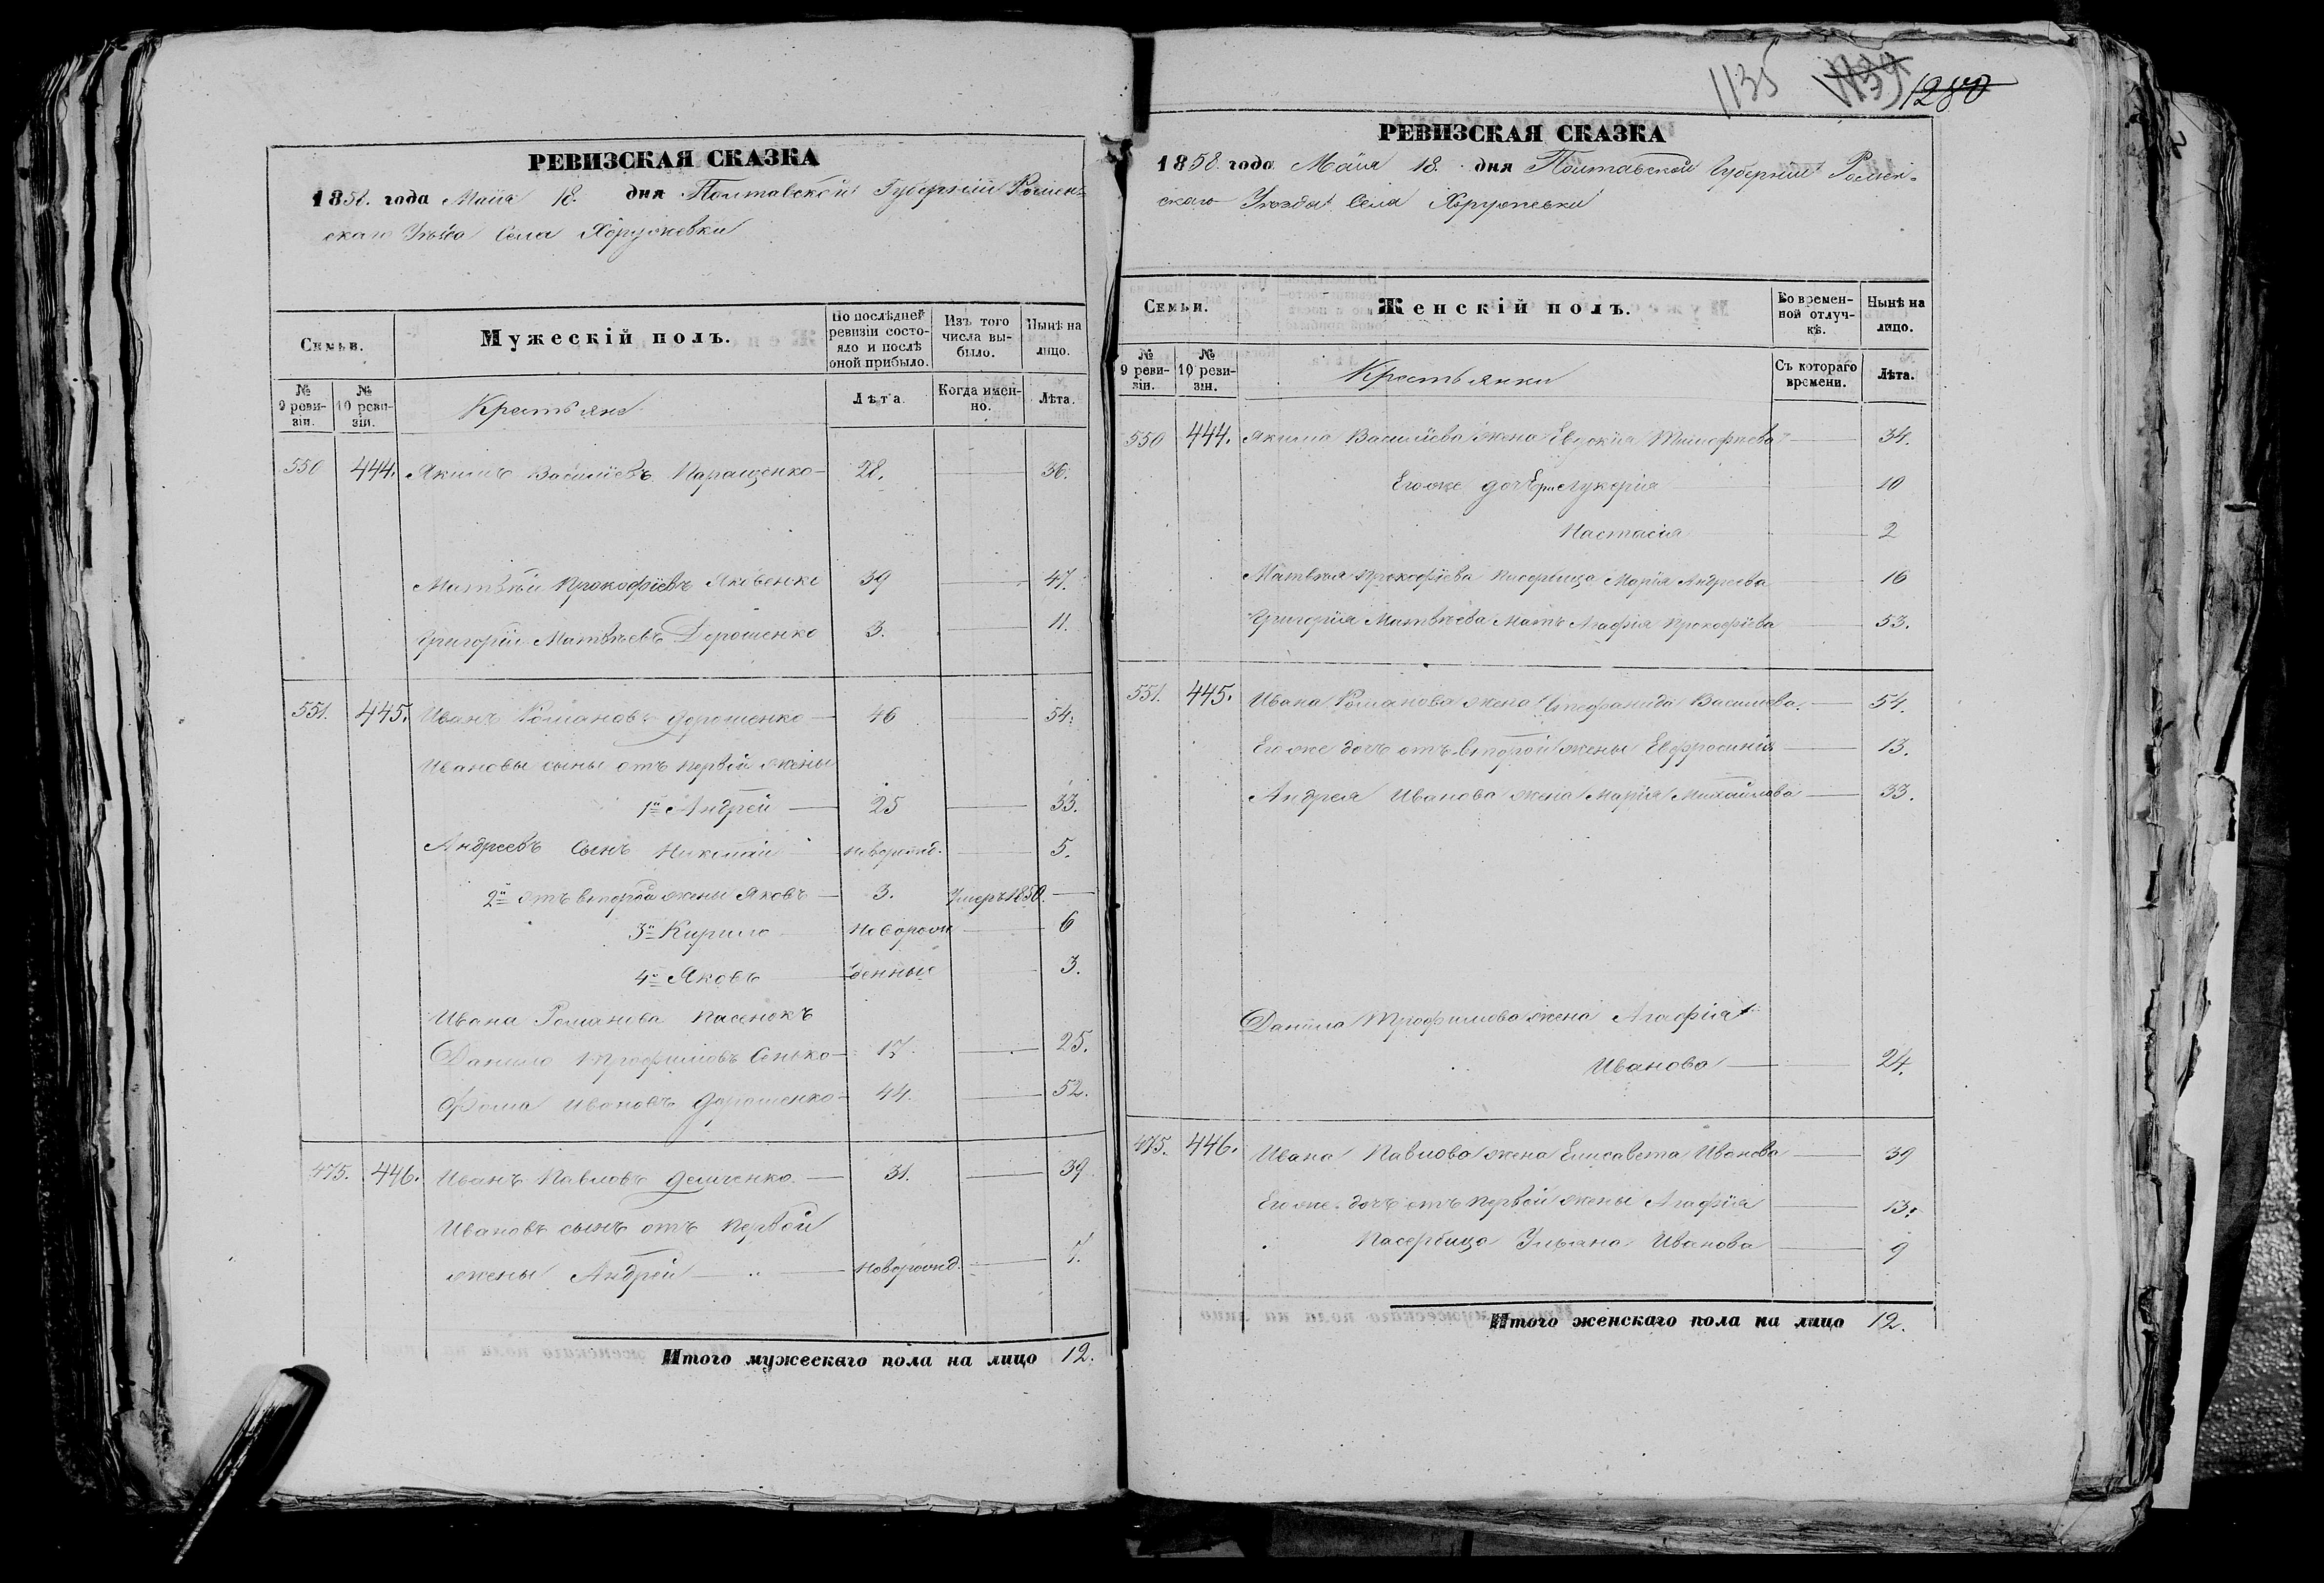 РЕВИЗСКАЯ СКАЗКА
1858. года Маия 18. дня Полтавской Губерніи Ромен-
скаго Уѣзда Села Хоружевки
Семьи.
Мужескій полъ.
По послѣдней ревизіи состояло и послѣ оной прибыло.
Изъ того числа выбыло.
Нынѣ на лицо.
№ 9 ревизіи.
№ 10 ревизіи.
Крестьяне
Лѣта
Когда именно.
Лѣта.
550 444. Якимъ Васильевъ Паращенко 28. 36.
Матвѣй Прокофіевъ Яковенко 39 47.
Григорій Матвѣевъ Дорошенко 3. 11.
551. 445. Иванъ Романовъ Дорошенко 46 54.
Ивановы сыны отъ первой жены
1й Андрей 25 33.
Андреевъ Сынъ Николай новорожд. 5.
2й отъ второй жены Яковъ 3. Умеръ 1850.
3й Кирило новорож 6
4й Яковъ денные 3.
Ивана Романова пасенокъ
Данило Трофимовъ Сенько 17. 25.
Фома Ивановъ Дорошенко 44. 52.
475. 446. Иванъ Павловъ Демченко 31. 39
Ивановъ сынъ отъ первой
жены Андрей новорожд. 7.
Итого мужескаго пола на лицо 12.
1135 1280
РЕВИЗСКАЯ СКАЗКА
1858. года Маия 18. дня Полтавской Губерніи Ромен-
скаго Уѣзда Села Хоружевки
Семьи.
Женскій полъ.
Во временной отлучкѣ.
Нынѣ на лицо.
№ 9 ревизіи.
№ 10 ревизіи.
Крестьянки
Съ котораго времени.
Лѣта.
550 444. Якима Васильева жена Евдокія Тимофеева 34.
Его же дочери Лукерія 10
Настасія 2
Матвѣя Прокофіева Пасербица Марія Андреева 16
Григорія Матвѣева Мать Агафія Прокофіева 53.
551. 445. Ивана Романова жена Стефанида Васильева. 54.
Его же дочь отъ второй жены Евфросинія 13.
Андрея Иванова жена Марія Михайлова 33.
Данила Трофимова жена Агафія
Иванова 24.
475. 446. Ивана Павлова жена Елисавета Иванова 39
Его же дочь отъ первой жены Агафія 13.
Пасербица Ульяна Иванова 9
Итого женскаго пола на лицо 12.